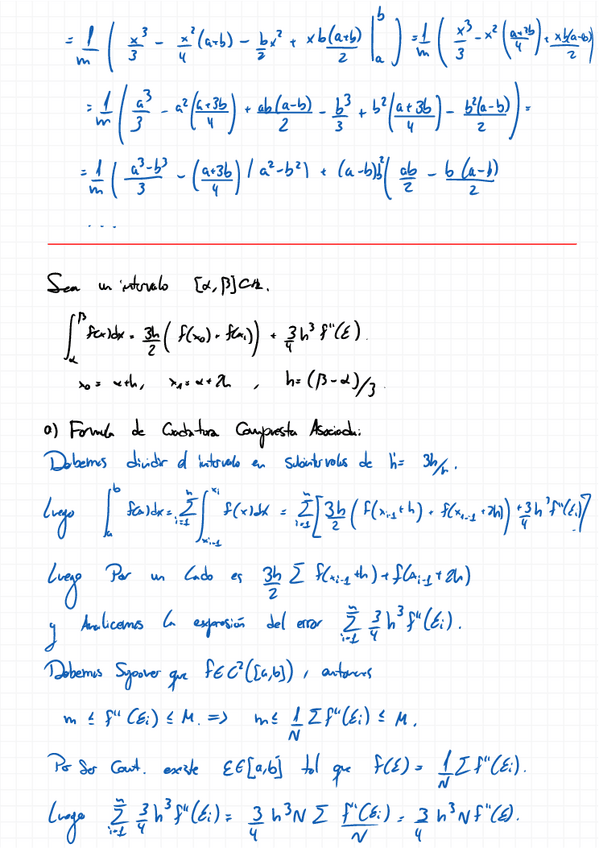 = 1/m ( x³/3 - x²/4 (a+b) - b/2 x² + xb(a+b)/2 |_a^b ) = 1/m ( x³/3 - x² (a+3b)/4 + xb(a-b)/2
= 1/m ( a³/3 - a² (a+3b)/4 + ab(a-b)/2 - b³/3 + b² (a+3b)/4 - b²(a-b)/2 ) =
= 1/m ( (a³-b³)/3 - (a+3b)/4 (a²-b²) + (a-b) ( ab/2 - b(a-b)/2
...
Sea un intervalo [α, β] ⊂
∫_α^β f(x)dx = 3h/2 ( f(x₀) + f(x₁) ) + 3/4 h³ f''(ξ).
x₀ = α+h, x₁ = α+2h , h = (β-α)/3
a) Formula de Cuadratura Compuesta Asociada:
Debemos dividir el intervalo en subintervalos de h' = 3h/
Luego ∫_a^b f(x)dx = Σ_{i=1}^n ∫_{x_{i-1}}^{x_i} f(x)dx = Σ_{i=1}^n [ 3h/2 ( f(x_{i-1}+h) + f(x_{i-1}+2h) ) + 3/4 h³ f''(ξi) ]
Luego Por un lado es 3h/2 Σ f(x_{i-1}+h) + f(x_{i-1}+2h)
y Analicemos la expresión del error Σ_{i=1}^n 3/4 h³ f''(ξi).
Debemos Suponer que f∈C²([a,b]), entonces
m ≤ f''(ξi) ≤ M. => m ≤ 1/N Σ f''(ξi) ≤ M.
Por Ser Cont. existe ξ∈[a,b] tal que f(ξ) = 1/N Σ f''(ξi).
Luego Σ_{i=1}^n 3/4 h³ f''(ξi) = 3/4 h³ N Σ f''(ξi)/N = 3/4 h³ N f''(ξ).